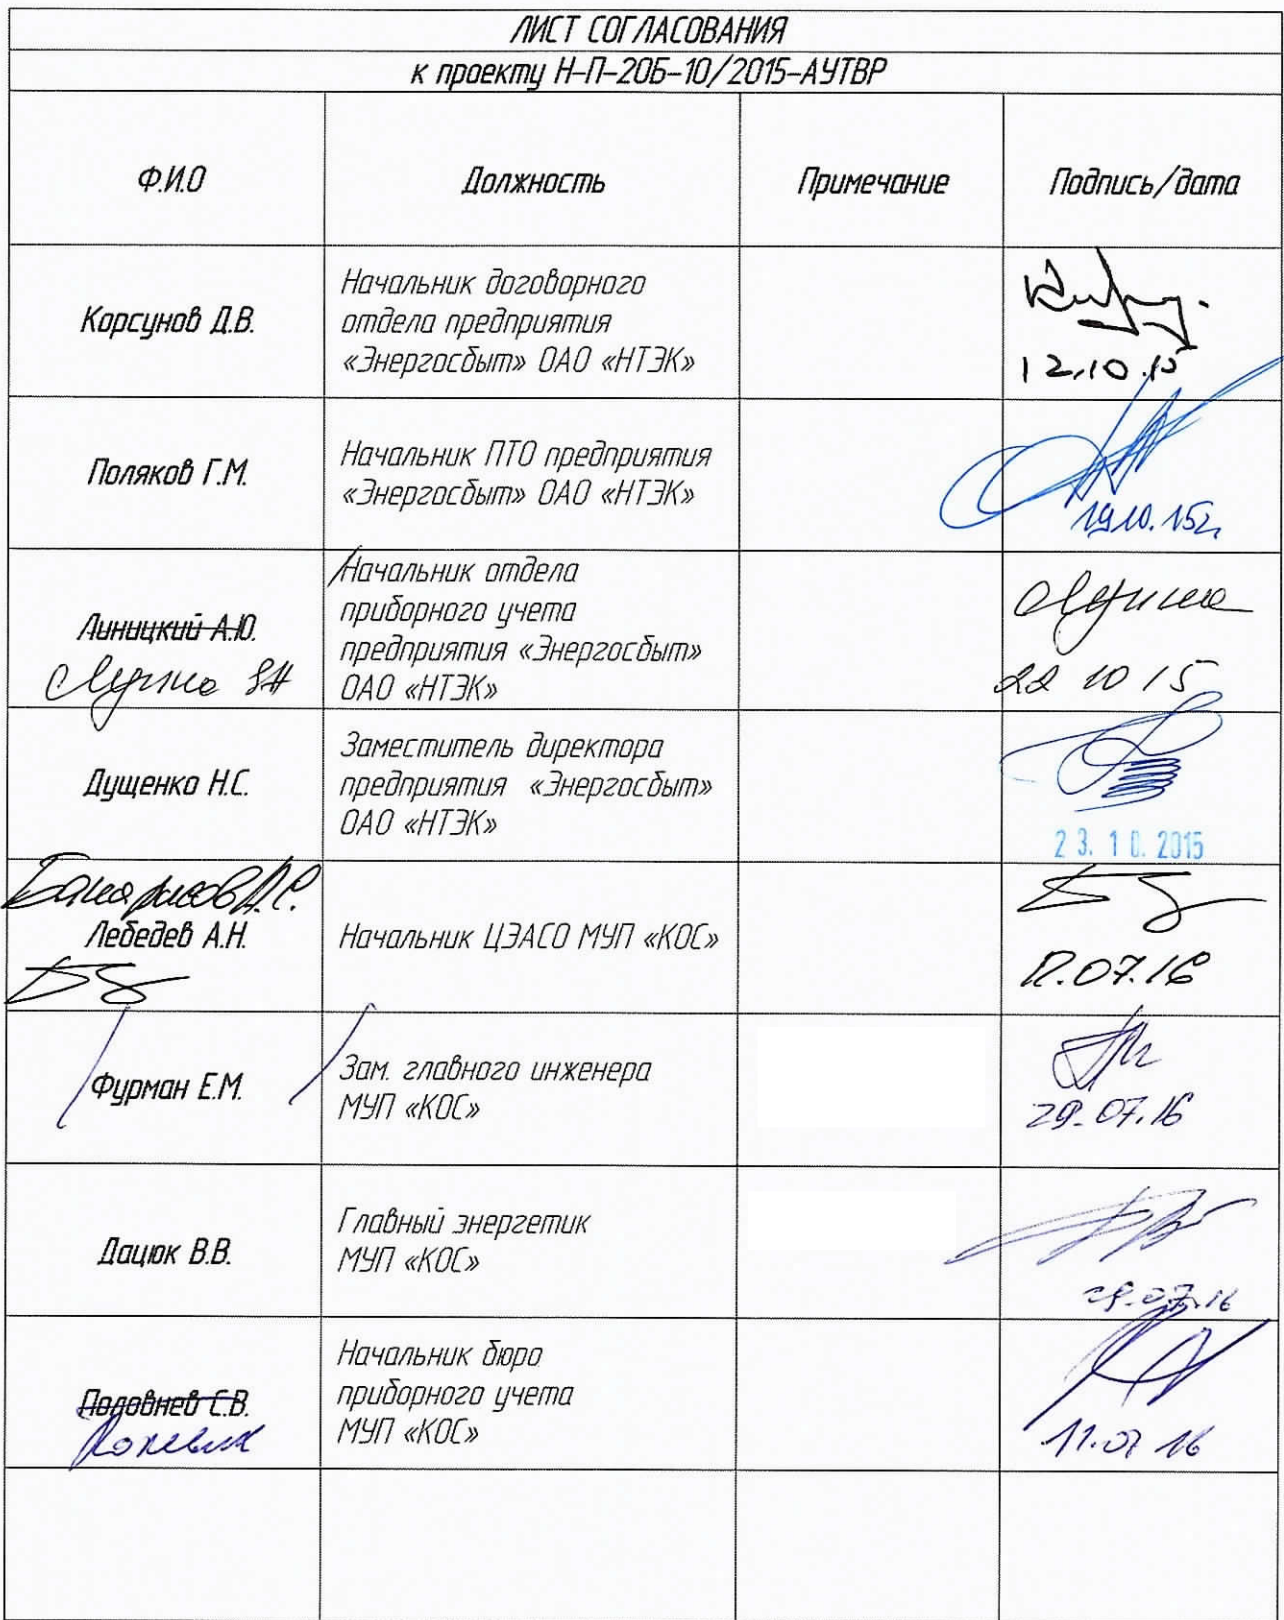 ЛИСТ СОГЛАСОВАНИЯ
к проекту Н-П-20Б-10/2015-АУТВР
Ф.И.О Должность Примечание Подпись/дата
Корсунов Д.В.
Начальник договорного
отдела предприятия
«Энергосбыт» ОАО «НТЭК»
12.10.15
Поляков Г.М.
Начальник ПТО предприятия
«Энергосбыт» ОАО «НТЭК»
19.10.15г.
Линицкий А.Ю.
Начальник отдела
приборного учета
предприятия «Энергосбыт»
ОАО «НТЭК»
22 10 15
Дущенко Н.С.
Заместитель директора
предприятия «Энергосбыт»
ОАО «НТЭК»
23.10.2015
Лебедев А.Н.
Начальник ЦЭАСО МУП «КОС»
12.07.16
Фурман Е.М.
Зам. главного инженера
МУП «КОС»
29.07.16
Дацюк В.В.
Главный энергетик
МУП «КОС»
29.07.16
Половнев С.В.
Начальник бюро
приборного учета
МУП «КОС»
11.07 16